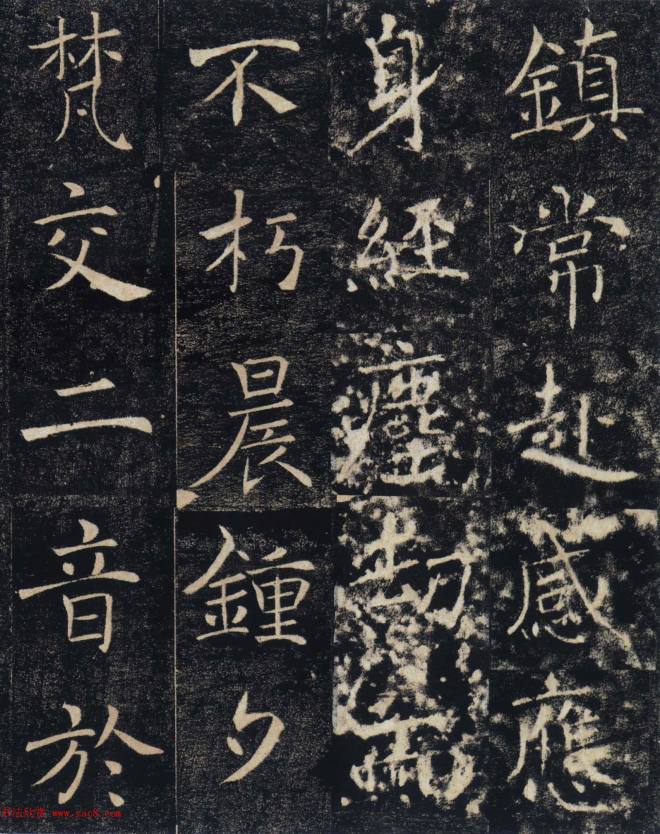 鎮常赴感應
身經塵劫而
不朽晨鍾夕
梵交二音於
书法欣赏 www.yac8.com